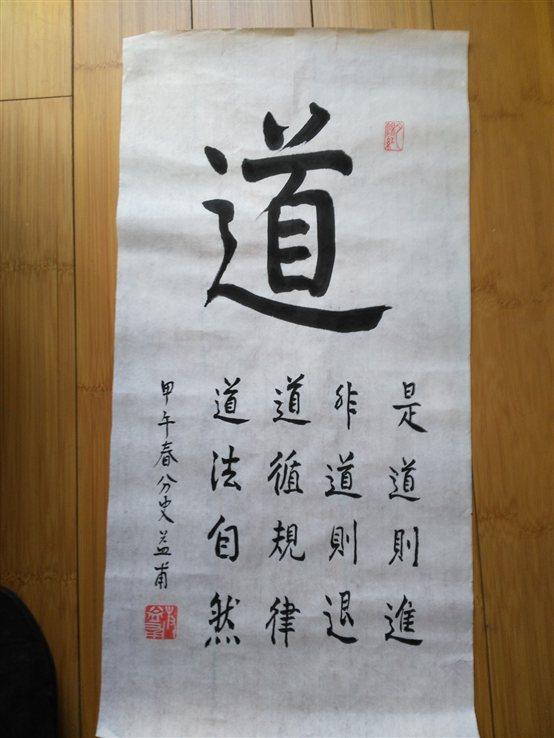 道
是道則進
非道則退
道循規律
道法自然
甲午春分史益甫